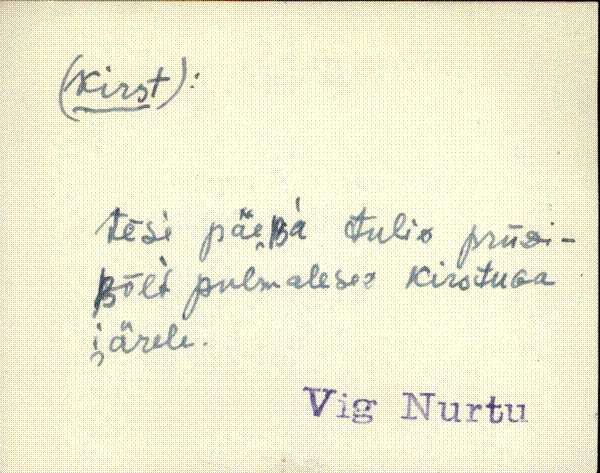 (Kirst):
tēsi päeʙ́a tulio prūsi-
ʙōlt pulmalesez kirstuɢa
järele.
Vig Nurtu